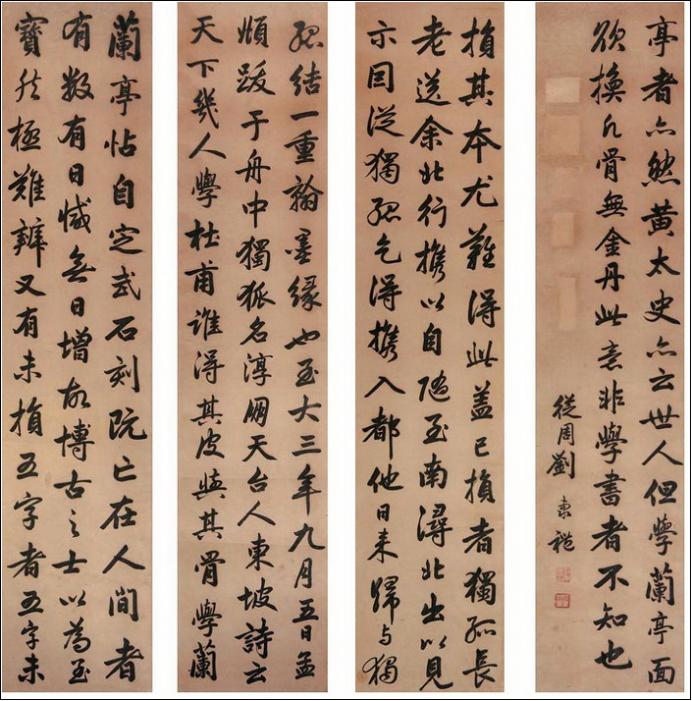 蘭亭帖自定武石刻既亡在人間者
有数有日減無日增故博古之士以為至
寶然極難辨又有未損五字者五字未
損其本尤難得此蓋已損者獨孤長
老送余北行携以自随至南潯北出以見
示因從獨孤乞得携入都他日来歸与獨
孤結一重翰墨緣也至大三年九月五日孟
頫跋于舟中獨狐名淳朋天台人東坡詩云
天下幾人學杜甫誰得其皮與其骨學蘭
亭者亦然黄太史亦云世人但學蘭亭面
欲換凡骨無金丹此意非學書者不知也
從周劉